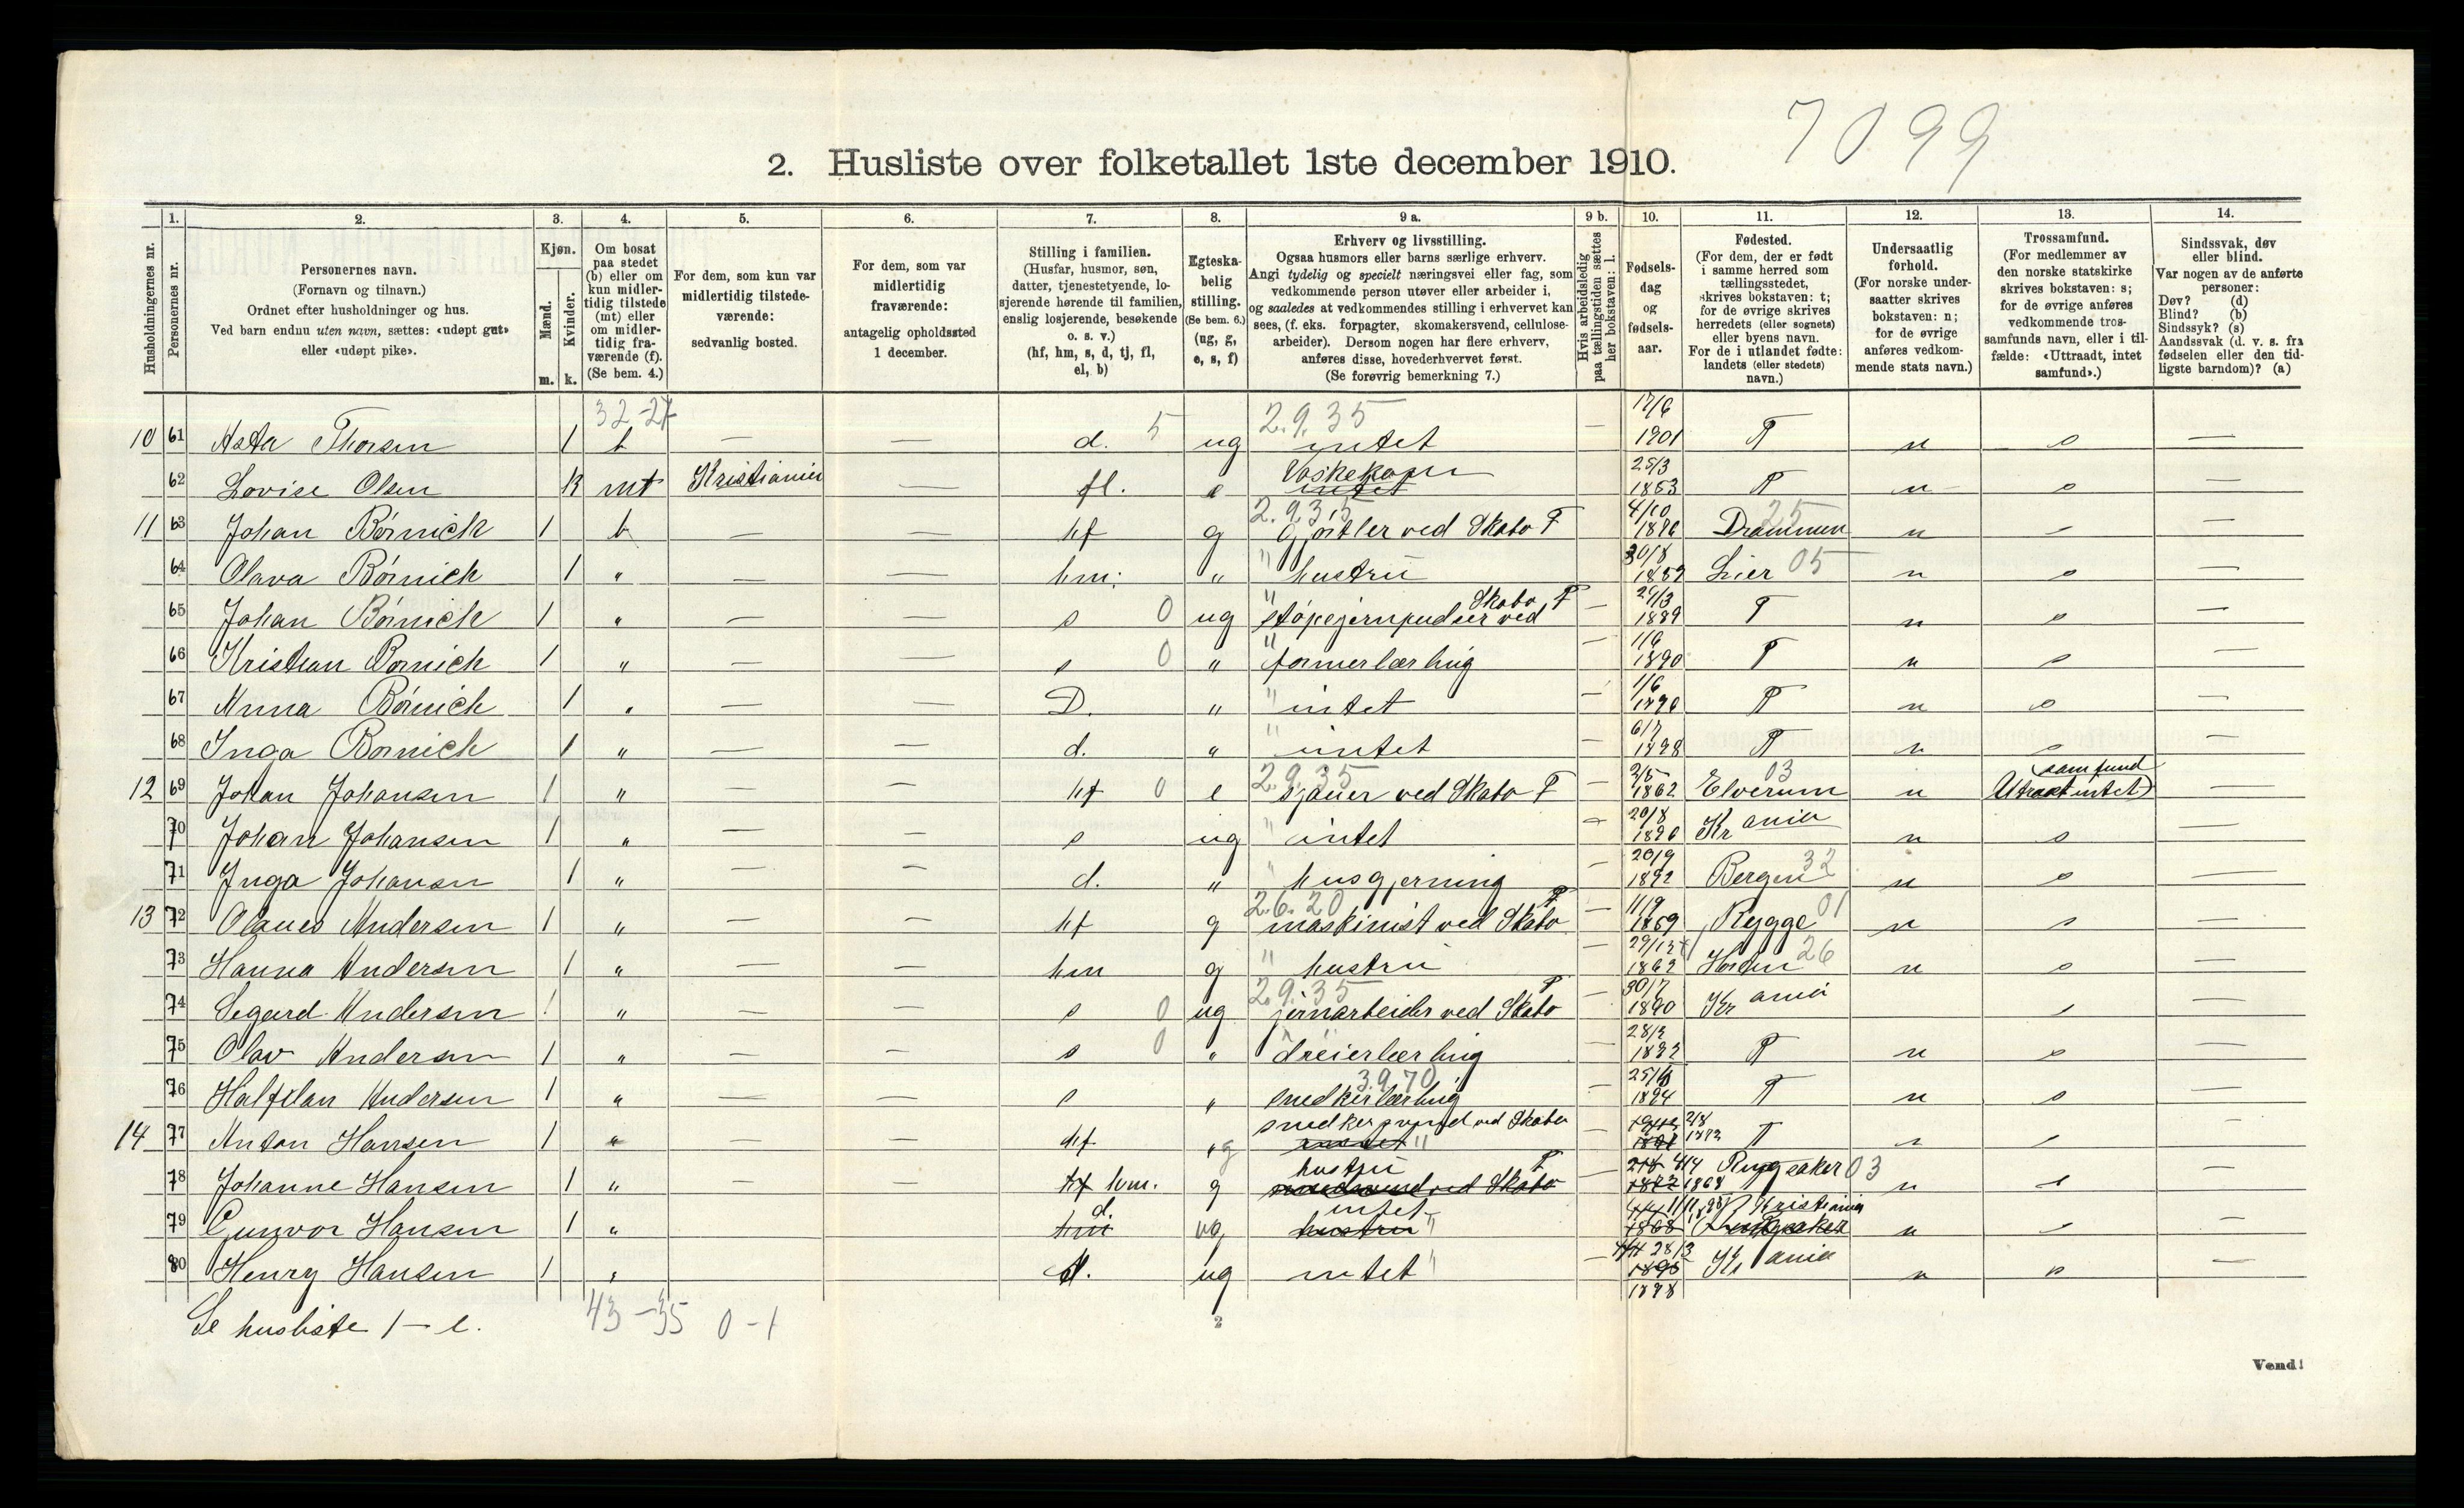 7099
2. Husliste over folketallet 1ste december 1910.
1. 2. 3. 4. 5. 6. 7. 8. 9 a. 9 b. 10. 11. 12. 13. 14.
Husholdningernes nr.
Personernes nr.
Personernes navn.
(Fornavn og tilnavn.)
Ordnet efter husholdninger og hus.
Ved barn endnu uten navn, sættes: «udøpt gut»
eller «udøpt pike».
Kjøn.
Mænd.
Kvinder.
m. k.
Om bosat
paa stedet
(b) eller om
kun midler-
tidig tilstede
(mt) eller
om midler-
tidig fra-
værende (f).
(Se bem. 4.)
For dem, som kun var
midlertidig tilstede-
værende:
sedvanlig bosted.
For dem, som var
midlertidig
fraværende:
antagelig opholdssted
1 december.
Stilling i familien.
(Husfar, husmor, søn,
datter, tjenestetyende, lo-
sjerende hørende til familien,
enslig losjerende, besøkende
o. s. v.)
(hf, hm, s, d, tj, fl,
el, b)
Egteska-
belig
stilling.
(Se bem. 6.)
(ug, g,
e, s, f)
Erhverv og livsstilling.
Ogsaa husmors eller barns særlige erhverv.
Angi tydelig og specielt næringsvei eller fag, som
vedkommende person utøver eller arbeider i,
og saaledes at vedkommendes stilling i erhvervet kan
sees, (f. eks. forpagter, skomakersvend, cellulose-
arbeider). Dersom nogen har flere erhverv,
anføres disse, hovederhvervet først.
(Se forøvrig bemerkning 7.)
Hvis arbeidsledig
paa tællingstiden sættes
her bokstaven: l.
Fødsels-
dag
og
fødsels-
aar.
Fødested.
(For dem, der er født
i samme herred som
tællingsstedet,
skrives bokstaven: t;
for de øvrige skrives
herredets (eller sognets)
eller byens navn.
For de i utlandet fødte:
landets (eller stedets)
navn.)
Undersaatlig
forhold.
(For norske under-
saatter skrives
bokstaven: n;
for de øvrige
anføres vedkom-
mende stats navn.)
Trossamfund.
(For medlemmer av
den norske statskirke
skrives bokstaven: s;
for de øvrige anføres
vedkommende tros-
samfunds navn, eller i til-
fælde: «Uttraadt, intet
samfund».)
Sindssvak, døv
eller blind.
Var nogen av de anførte
personer:
Døv? (d)
Blind? (b)
Sindssyk? (s)
Aandssvak (d. v. s. fra
fødselen eller den tid-
ligste barndom)? (a)
32-27 2.9.35 17/6
10 61 Asta Thorsen 1 b — — d. 5 ug intet — 1901 T n s —
Vaskekone 25/3
62 Lovise Olsen k mt Kristiania — fl. e intet 1853 T n s —
2.9.35 4/10 25
11 63 Johan Børnich 1 b — — hf g Gjørtler ved Skabo F Drammen n s —
30/8
64 Olava Børnich 1 " — — hm: " " hustru Lier 05 n s —
Skabo F
65 Johan Børnich 1 " — — s 0 ug støpejernpudser ved — 1889 T n s —
66 Kristian Børnich 1 " — — s 0 " formerlærling — 1890 T n s —
1/6
67 Anna Børnich 1 " — — D. " " intet — T n s —
6/7
68 Inga Børnich 1 " — — d. " " intet — 1898 T n s —
2.9.35 2/5 03 samfund
12 69 Johan Johansen 1 " — hf 0 e sjauer ved Skabo F — 1862 Elverum n Utraadt intet —
20/8
70 Johan Johansen 1 " — — s ug " intet — 1890 Kr ania n s —
20/9
71 Inga Johansen 1 " — — d. " " husgjerning — 1892 Bergen 32 n s —
2.6.20 F 11/9
13 72 Olaues Andersen 1 " — — hf g maskinist ved Skabo — 1859 Rygge 01 n s —
29/12
73 Hanna Andersen 1 " — — hm g " hustru — 1862 Horten 26 n s —
2.9.35 F 30/7
74 Segurd Andersen 1 " — — s 0 ug jernarbeider ved Skabo — 1890 Kr ania s —
75 Olav Andersen 1 " — — s 0 " dreierlærling — T n s —
3.9.70
76 Halfdan Andersen 1 " — — s " snedkerlærling — 1894 T n s —
snedkersvend ved Skabo 2/8
14 77 Anton Hansen 1 " — — hf g " T n s —
hustru F 4/4
78 Johanne Hansen 1 " — — hf hm. g snedsvend ved Skabo — 1868 Ringsaker 03 n s —
d. intet 11/11 Kristiania
79 Gunvor Hansen 1 " hm ug hustru " 1868 Ringsaker n s —
28/3
80 Henry Hansen 1 " ug intet " — 1895 Kr ania n s —
1898
Se husliste 1 — e. 43-35 0-1
2
Vend!